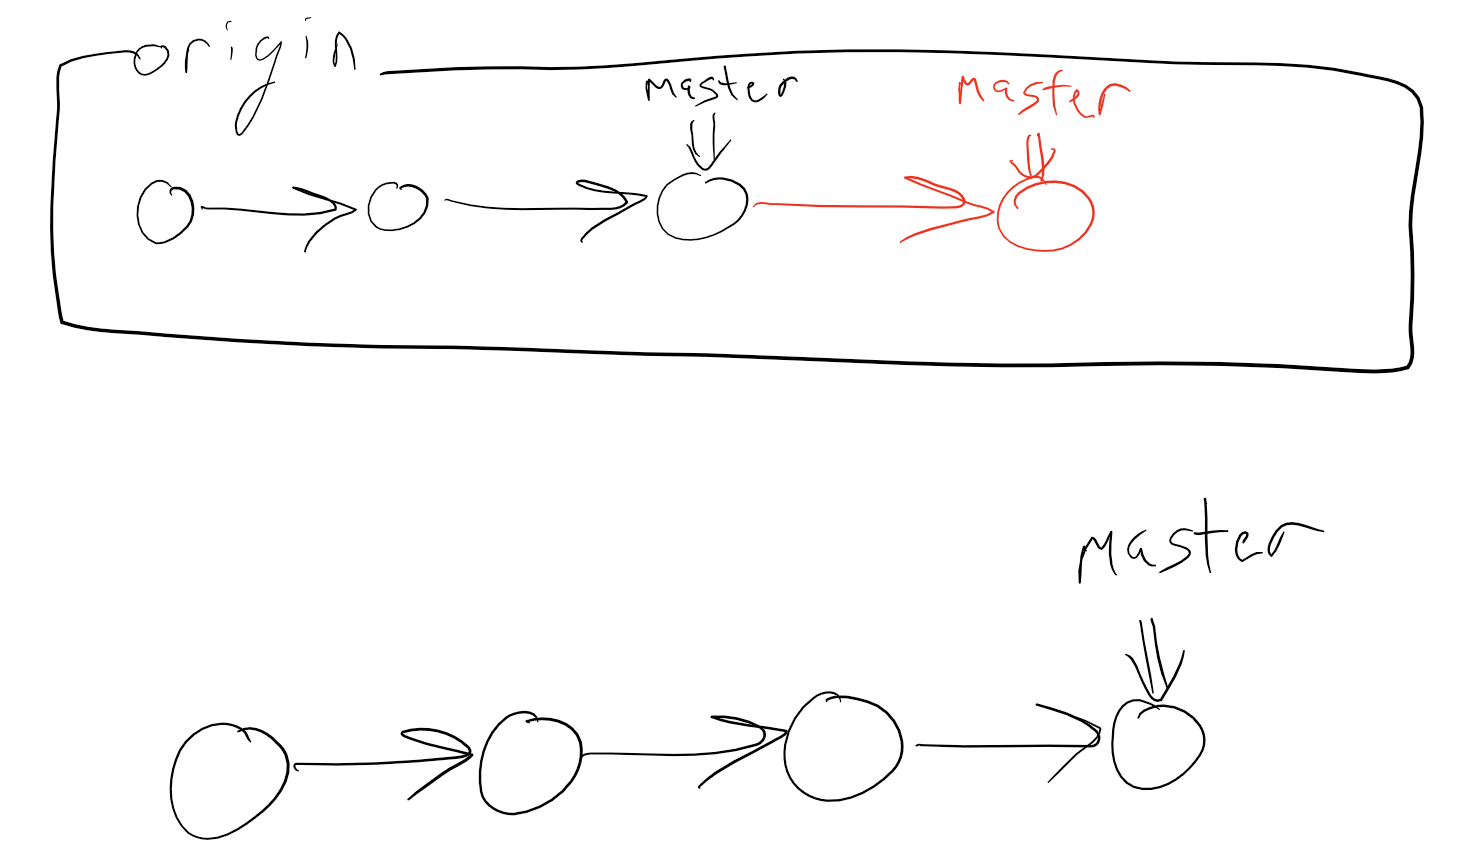 origin
master
master
master